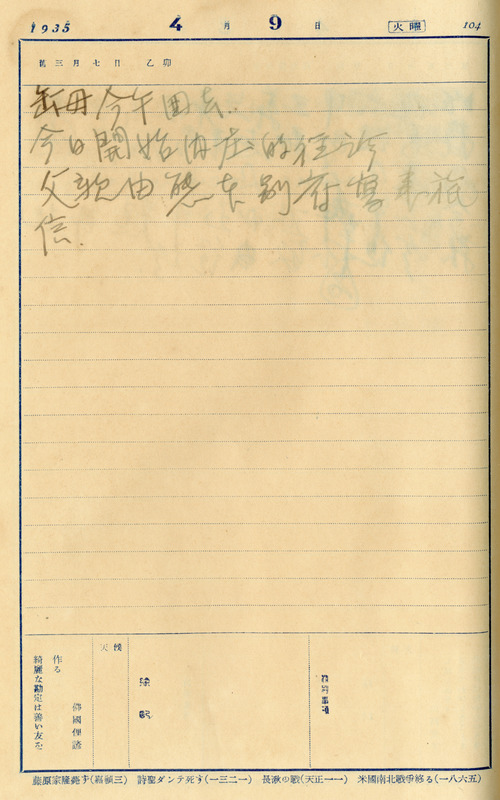 1935 4月9日 火曜 104
舊三月七日 乙卯
岳母今午囬去.
今日開始內庄的往診
父親由熊本別府寫來祇
信.
天候
發信
受信
綺麗な勘定は善い友を
作る
佛國俚諺
藤原家隆薨ず(嘉禎三) 詩聖ダンテ死す(一三二一) 長湫の戰(天正一一) 米國南北戰爭終る(一八六五)